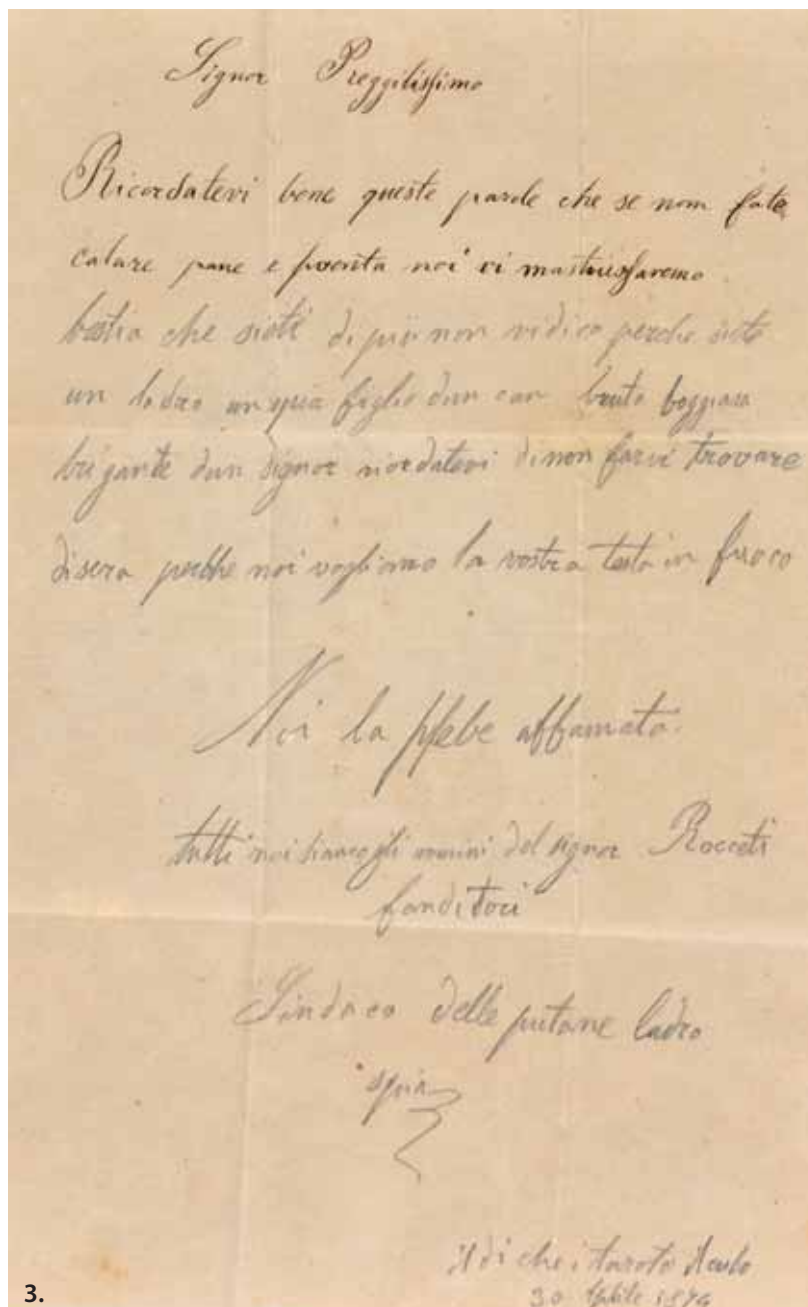 Signor Preggilissimo
Ricordatevi bene queste parole che se nom fate
calare pane e
noi vi
bestia che siete di più non vi dico perche siete
un ladro un spia figlio dun can bruto boggiara
brigante dun signor ricordatevi di non farvi trovare
di sera perche noi vogliamo la vostra testa in fuoco
Noi la plebe affamata.
tutti noi siamo gli uomini del signor Rocceti
fonditori
Sindaco delle putane ladro
spia
il di che i
30 Aprile
3.